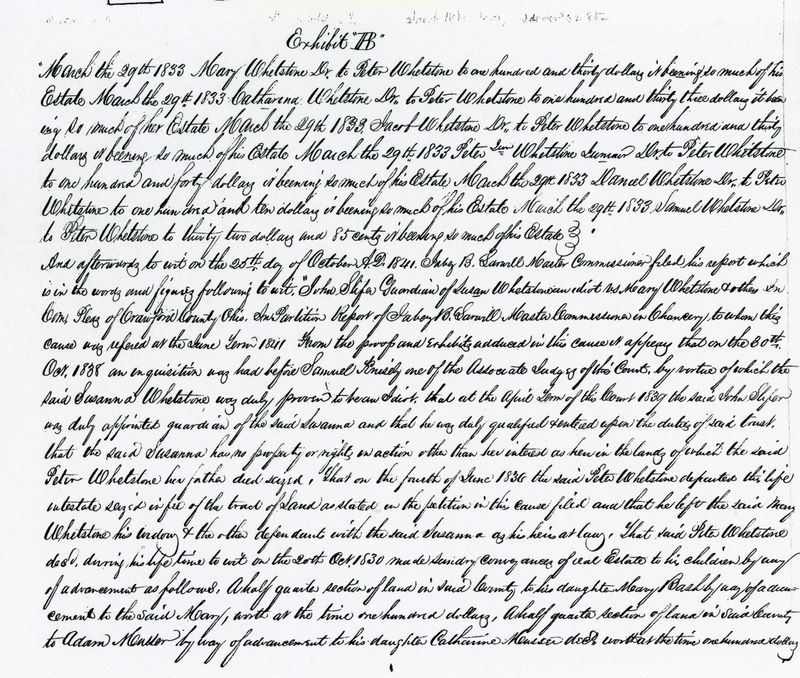 Exhibit "B"
"March the 29th 1833 Mary Whetstone Dr. to Peter Whetstone to one hundred and thirty dollars it beeing so much of his
Estate March the 29th 1833 Catharena Whetstone Dr. to Peter Whetstone to one hundred and thirty three dollars it bee
ing so much of her Estate March the 29th 1833 Jacob Whetstone Dr. to Peter Whetstone to one hundred and thirty
dollars it beeing so much of his Estate March the 29th 1833 Peter Whetstone Junior Dr. to Peter Whetstone
to one hundred and forty dollars is beeing so much of his Estate March the 29th 1833 Daniel Whetstone Dr. to Peter
Whetstone to one hundred and ten dollars is beeing so much of his Estate March the 29th 1833 Samuel Whetstone Dr.
to Peter Whetstone to thirty two dollars and 85 cents it beeing so much of his Estate"
And afterwards to wit on the 25th day of October A.D. 1841. B. Master Commissioner filed his report which
is in the words and figures following to wit. "John Guardian of Susan Whetstone an idiot vs Mary Whetstone & others In
Com. Pleas of Crawford County Ohio. In Partition Report of B. Master Commissioner in Chancery to whom this
cause was refered at the June Term 1841 From the proof and Exhibits adduced in this cause it appears that on the 30th
Oct. 1838 an inquisition was had before Samuel one of the Associate Judges of this Court, by virtue of which the
said Susanna Whetstone was duly proven to be an Idiot, that at the April Term of this Court 1839 the said John
was duly appointed guardian of the said Susanna and that he was duly qualified & entered upon the duties of said trust.
that the said Susanna has no property or rights in action other than her interest as heir in the lands of which the said
Peter Whetstone her father died seized, That on the fourth of June 1836 the said Peter Whetstone departed this life
intestate seized in fee of the tract of Land as stated in the petition in this cause filed and that he left the said Mary
Whetstone his widow & the other defendants with the said Susanna as his heirs at law, That said Peter Whetstone
decd. during his life time to wit on the 20th Oct 1830 made sundry conveyances of real Estate to his children by way
of advancement as follows, A half quarter section of land in said County to his daughter Mary Bash by way of advan
cement to the said Mary, worth at the time one hundred dollars, A half quarter section of land in said County
to Adam Musser by way of advancement to his daughter Catharine Musser decd. worth at the time one hundred dollars